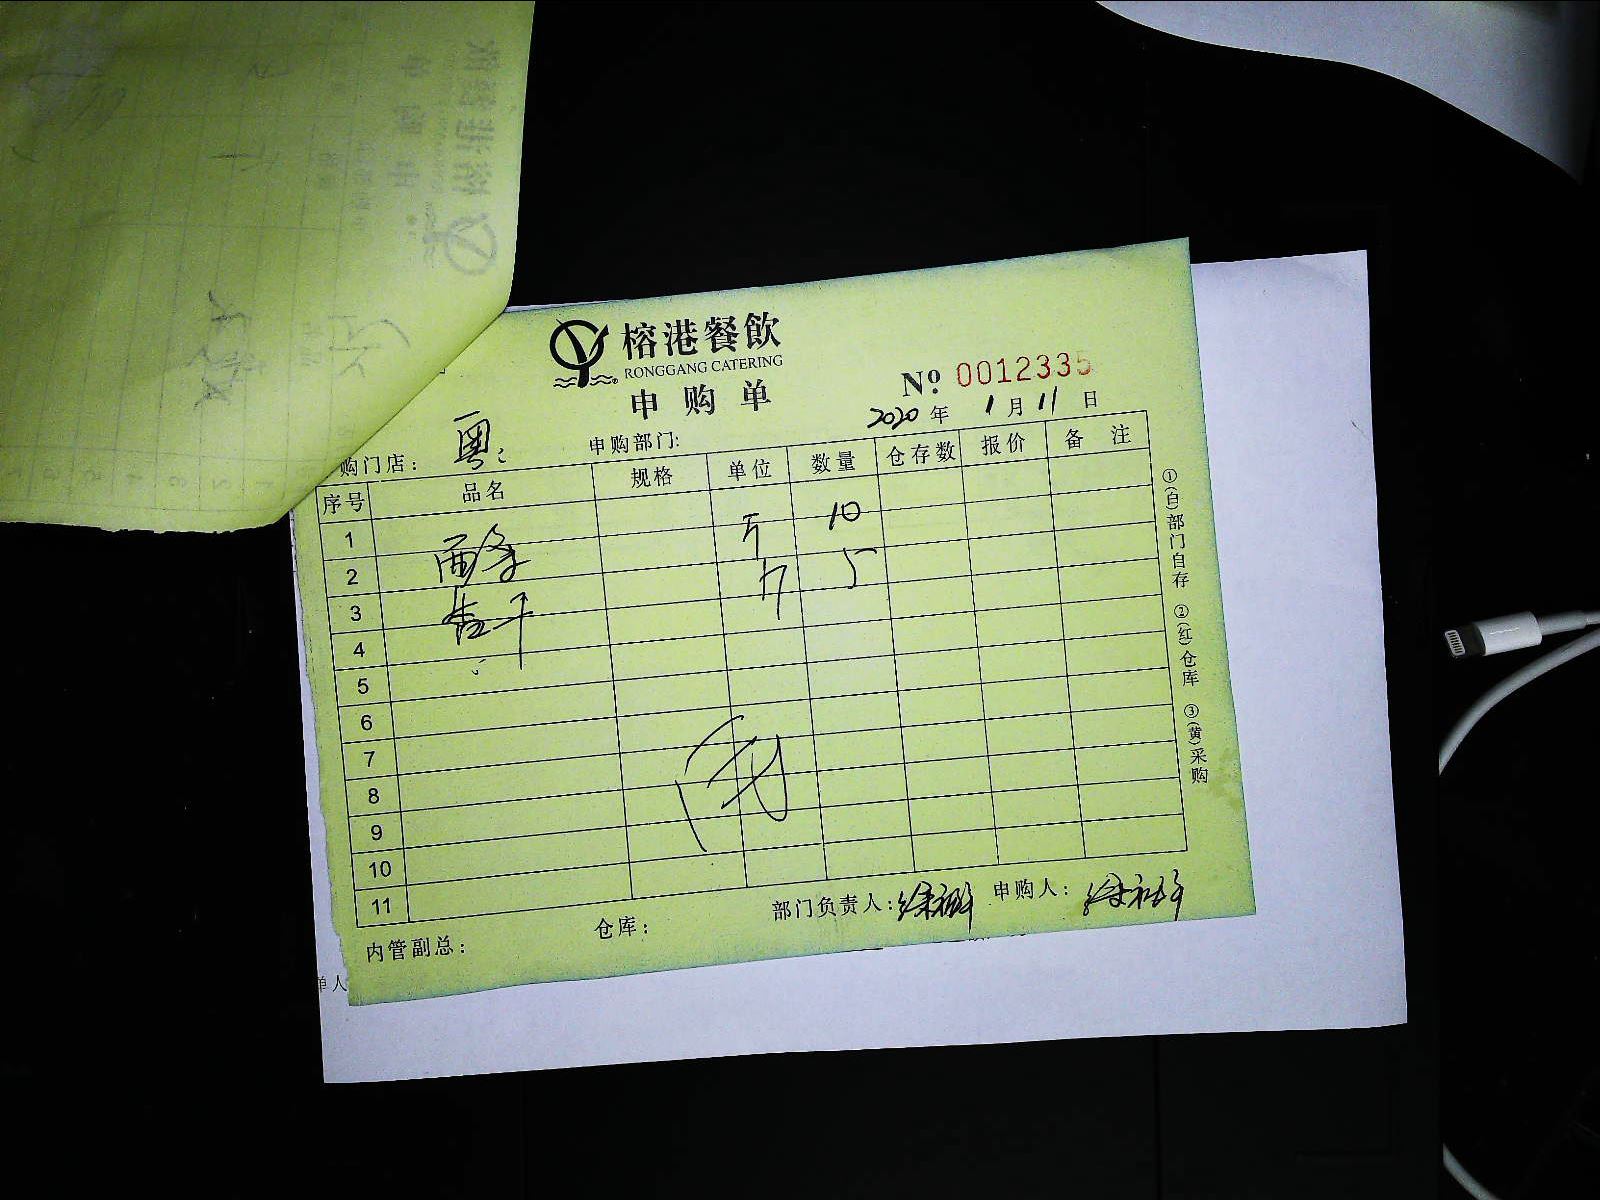 榕港餐飲
RONGGANG CATERING
申购单
№ 0012335
2020年 1月11日
购门店： 粤 申购部门:
序号 品名 规格 单位 数量 仓存数 报价 备注
1 斤 10
2 西 斤 5
3
4
5
6
7
8
9
10
11
内管副总： 仓库： 部门负责人: 徐 申购人： 徐
①(白)部门自存 ②(红)仓库 ③(黄)采购
单人